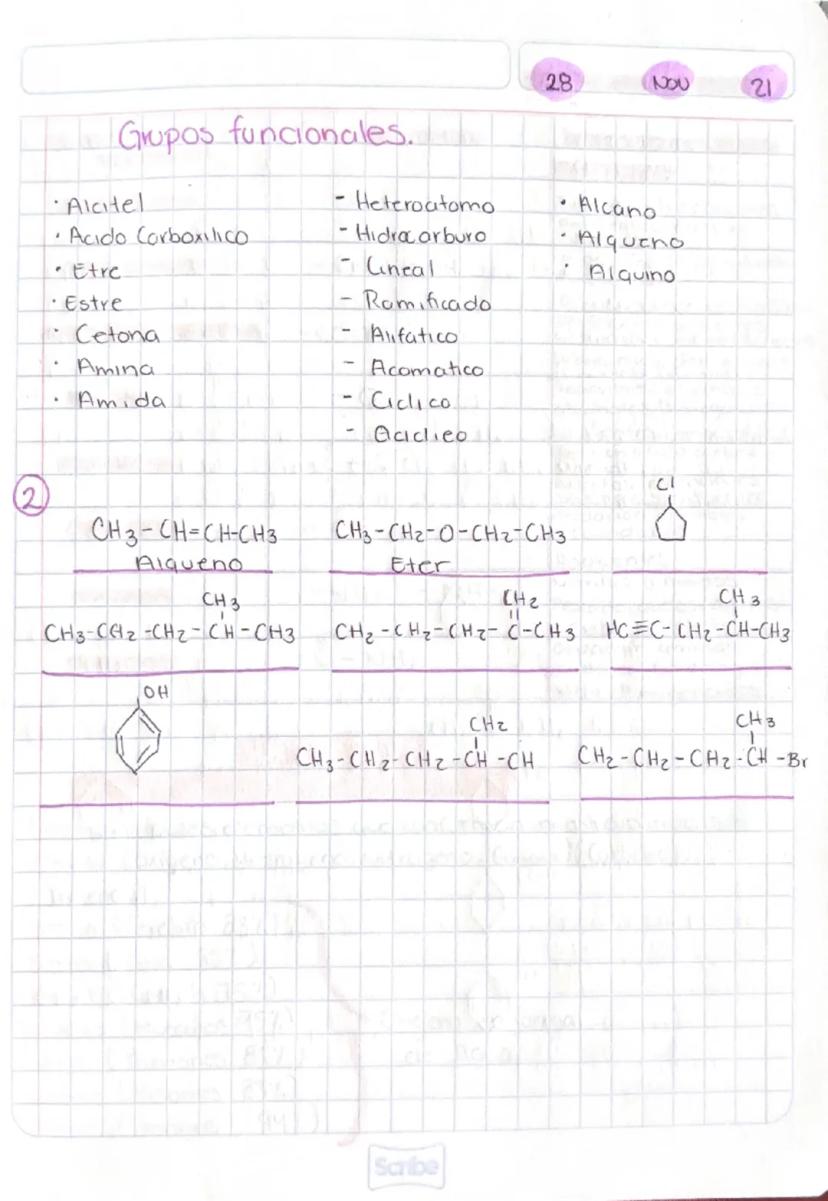 28 NOV 21
Grupos funcionales.
· Alcitel
· Acido Carboxilico
· Etre
· Estre
· Cetona
· Amina
· Amida
- Heteroatomo
- Hidrocarburo
- Lineal
- Ramificado
- Alifatico
- Acomatico
- Ciclico
- aciclico
· Alcano
· Alqueno
· Alquino
2
CH3-CH=CH-CH3
Alqueno
CH3-CH2-O-CH2-CH3
Eter
Cl
CH3
CH3-CH2-CH2-CH-CH3
CH2
CH2-CH2-CH2-C-CH3
CH3
HC≡C-CH2-CH-CH3
OH
CH2
CH3-CH2-CH2-CH-CH
CH3
CH2-CH2-CH2-CH-Br
Scribe